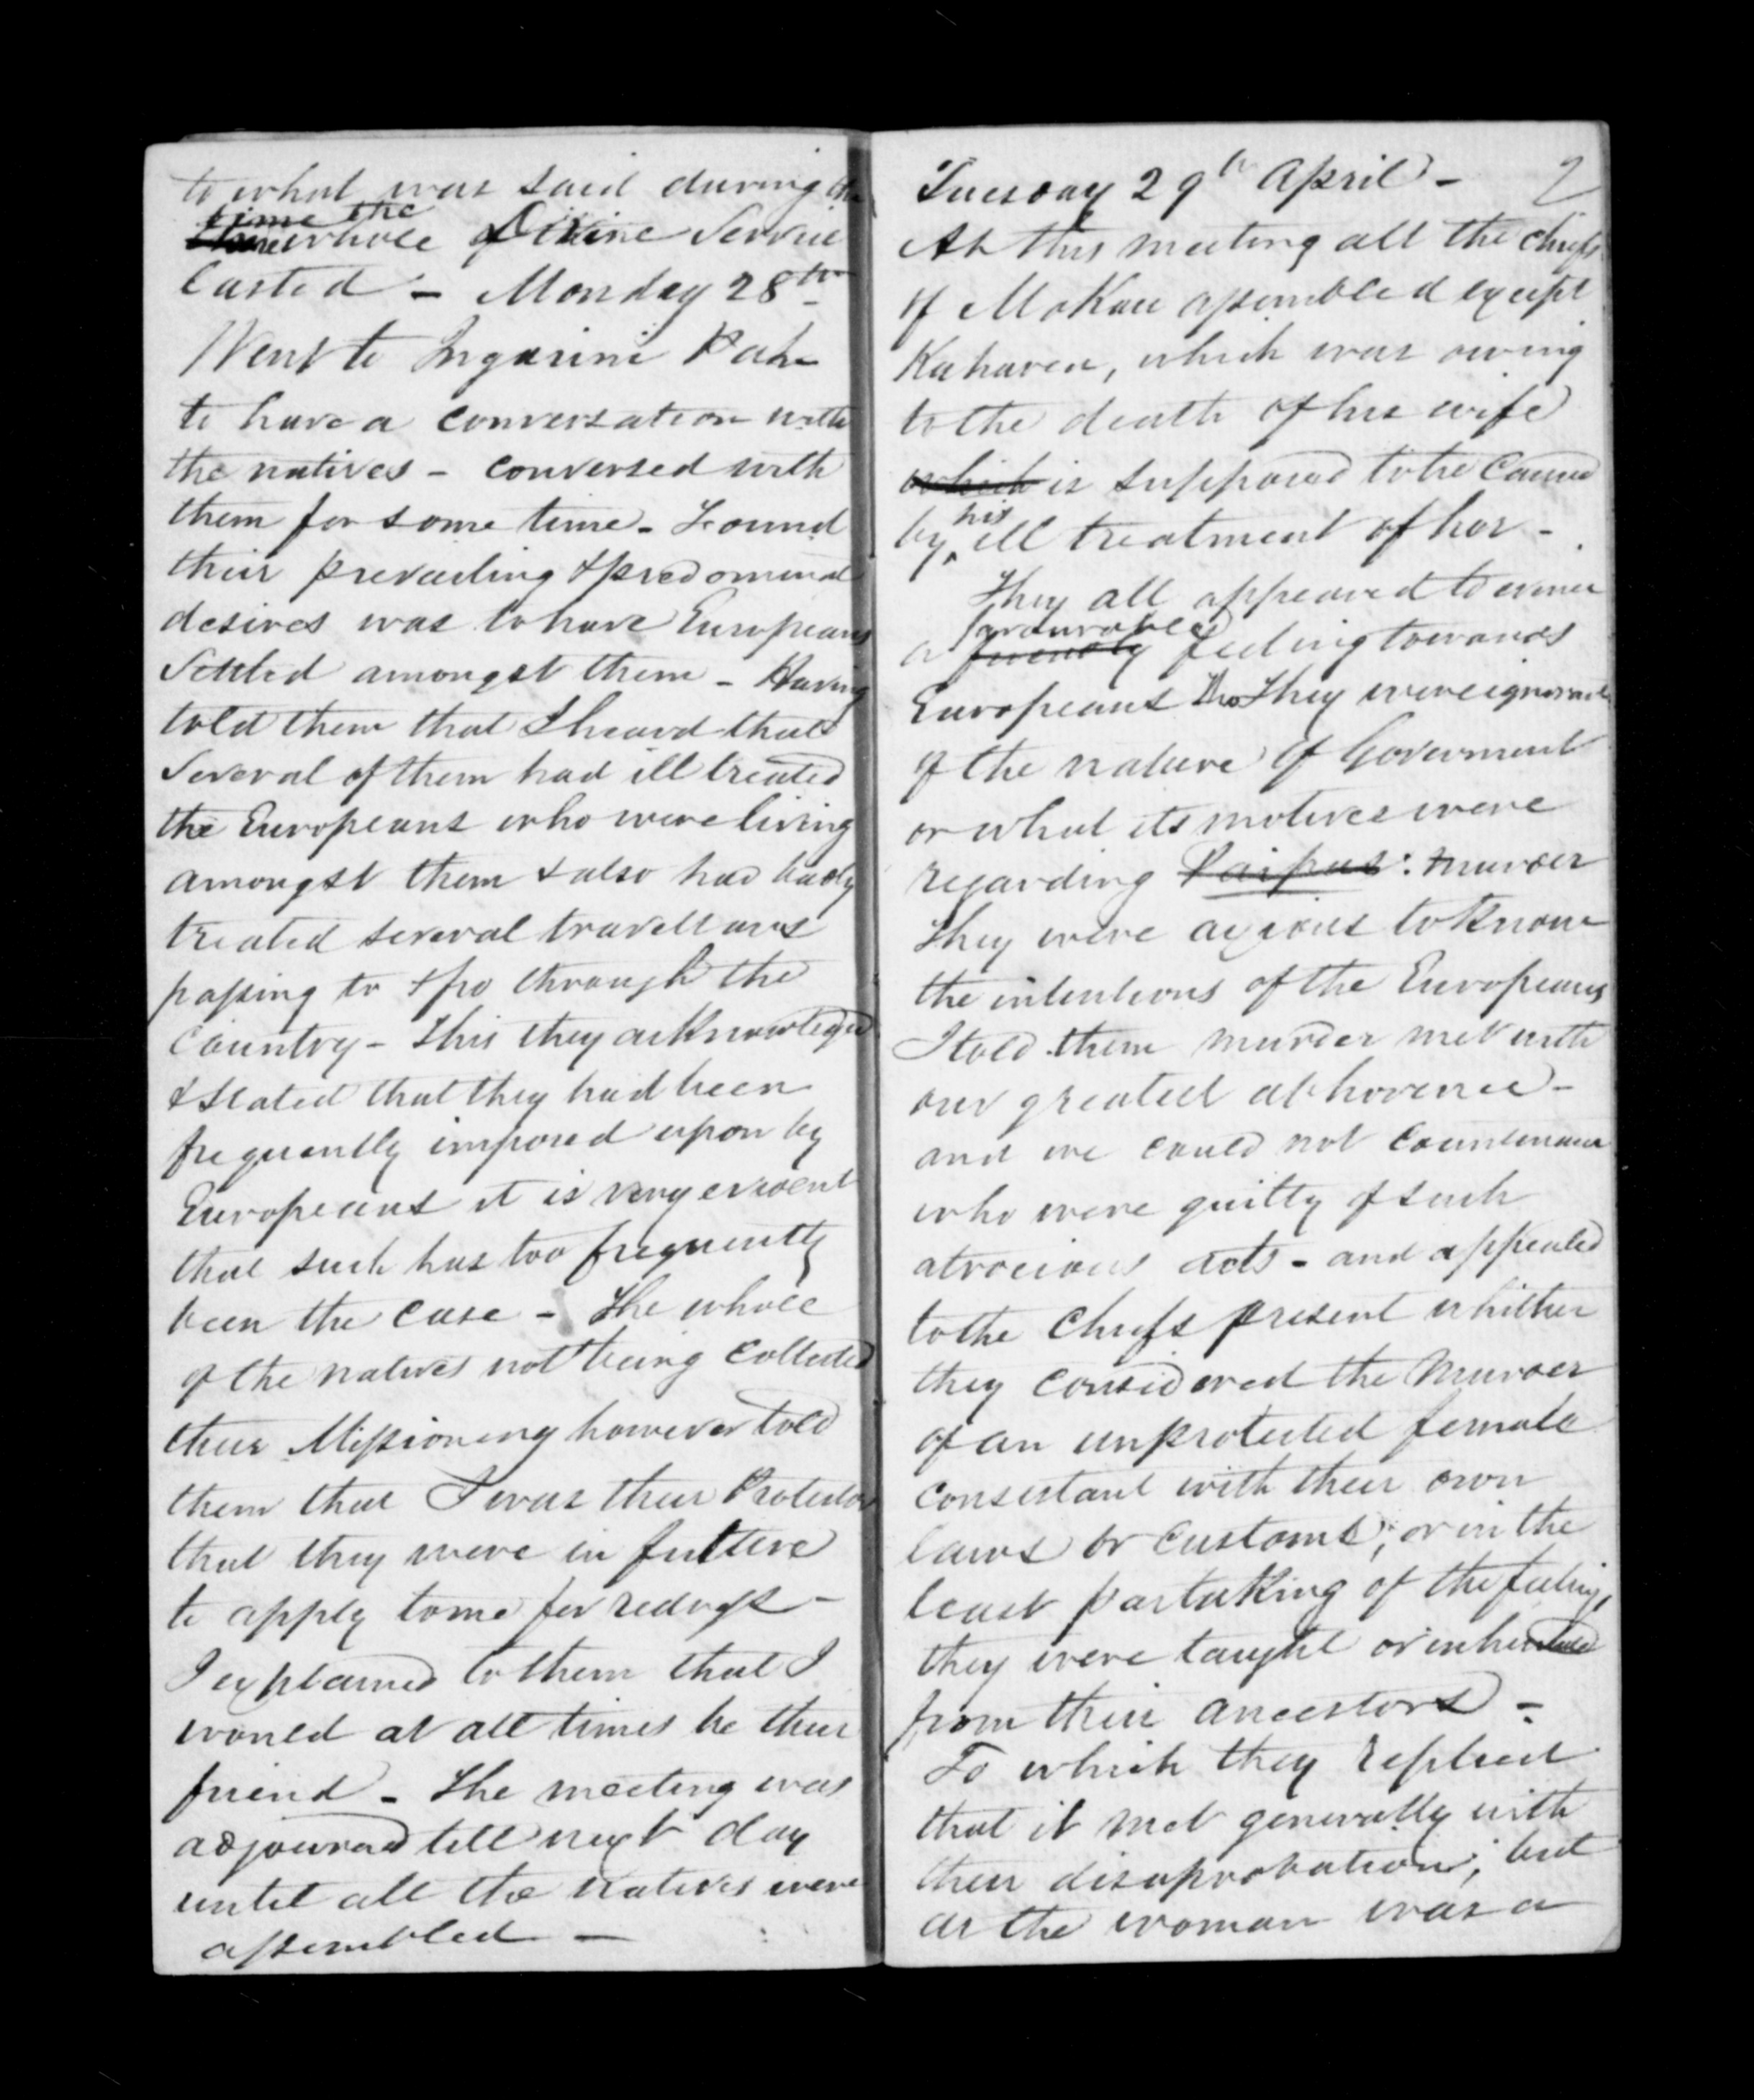 to what was said during the
time the
whole of Divine Service
lasted - Monday 28th
Went to Ingarini Pah
to have a conversation with
the natives - conversed with
them for some time - Found
their prevailing & predominal
desires was to have Europeans
Settled amongst them - Having
told them that I heard that
Several of them had ill treated
the Europeans who were living
amongst them & also had badly
treated several travellars
passing to & fro through the
Country - This they acknowledged
& stated that they had been
frequently imposed upon by
Europeans it is very evident
that such has too frequently
been the case - The whole
of the natives not being collected
their Missionary however told
them that I was their Protector
that they were in future
to apply to me for redress -
I explained to them that I
would at all times be their
friend - The meeting was
adjourned till next day
until all the natives were
assembled -
Tuesday 29th April - 2
At this meeting all the chiefs
of MoKau assembled except
Kaharoa, which was owing
to the death of his wife
which is supposed to be caused
his
by ill treatment of her -
They all appeared to evince
favourable
a friendly feeling towards
Europeans Tho They were ignorant
of the nature of Goverment
or what its motives were
regarding Paipas: murder
they were axious to know
the intentions of the Europeans
I told them murder met with
our greatest abhorence -
and we could not countenance
who were guilty of such
atrocious acts - and appealed
to the chiefs present whither
they considered the Murder
of an unprotected female
consistant with their own
laws or customs; or in the
least partaking of the feelings
they were taught or inherited
from their ancestors -
To which they replied
that it met generally with
their disaprobation; but
as the woman was a